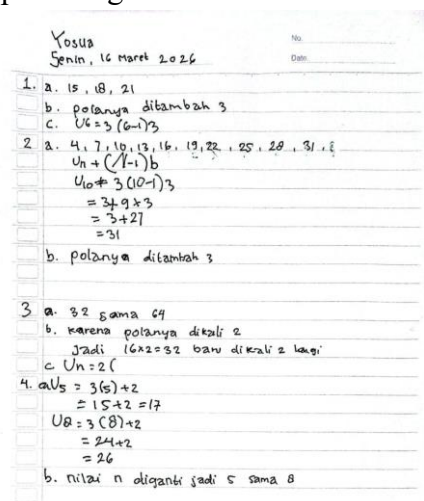 Yosua
No.
Senin, 16 Maret 2026
Date
1. a. 15, 18, 21
b. polanya ditambah 3
c. U6 = 3 (6-1)3
2 a. 4, 7, 10, 13, 16, 19, 22, 25, 28, 31,
Un + (n-1)b
U10 = 3(10-1)3
= 3+9×3
= 3+27
= 31
b. polanya ditambah 3
3 a. 32 sama 64
b. karena polanya dikali 2
Jadi 16×2=32 baru dikali 2 lagi
c. Un = 2(
4. a U5 = 3(5)+2
= 15+2 = 17
U8 = 3(8)+2
= 24+2
= 26
b. nilai n diganti jadi 5 sama 8